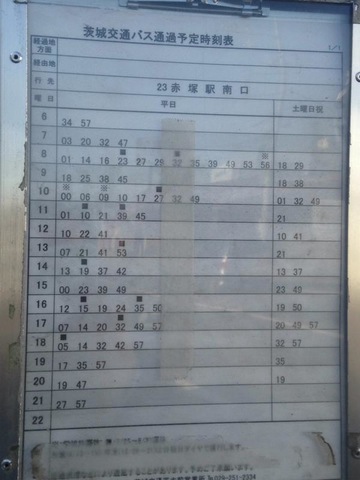 茨城交通バス通過予定時刻表
経過地方面 1/1
経由地
行先 23 赤塚駅南口
曜日 平日 土曜日祝
6 34 57
7 03 20 32 47
■ ※ ※
8 01 14 16 23 27 28 32 35 39 49 53 56 18 29
9 18 25 38 45 18 38
※ ※ ■
10 00 06 09 10 17 27 32 49 01 32 49
■ ■
11 01 10 21 39 45 21
12 10 22 41 01 41
■
13 07 21 41 53 21
■
14 13 19 37 42 13 37
15 00 23 39 49 23 49
■ ■
16 12 15 19 24 35 50 19 50
■
17 07 14 20 32 49 57 20 49 57
■
18 05 14 32 42 57 32 57
19 17 35 57 35
20 19 47 19
21 27 57
22
029-251-2334